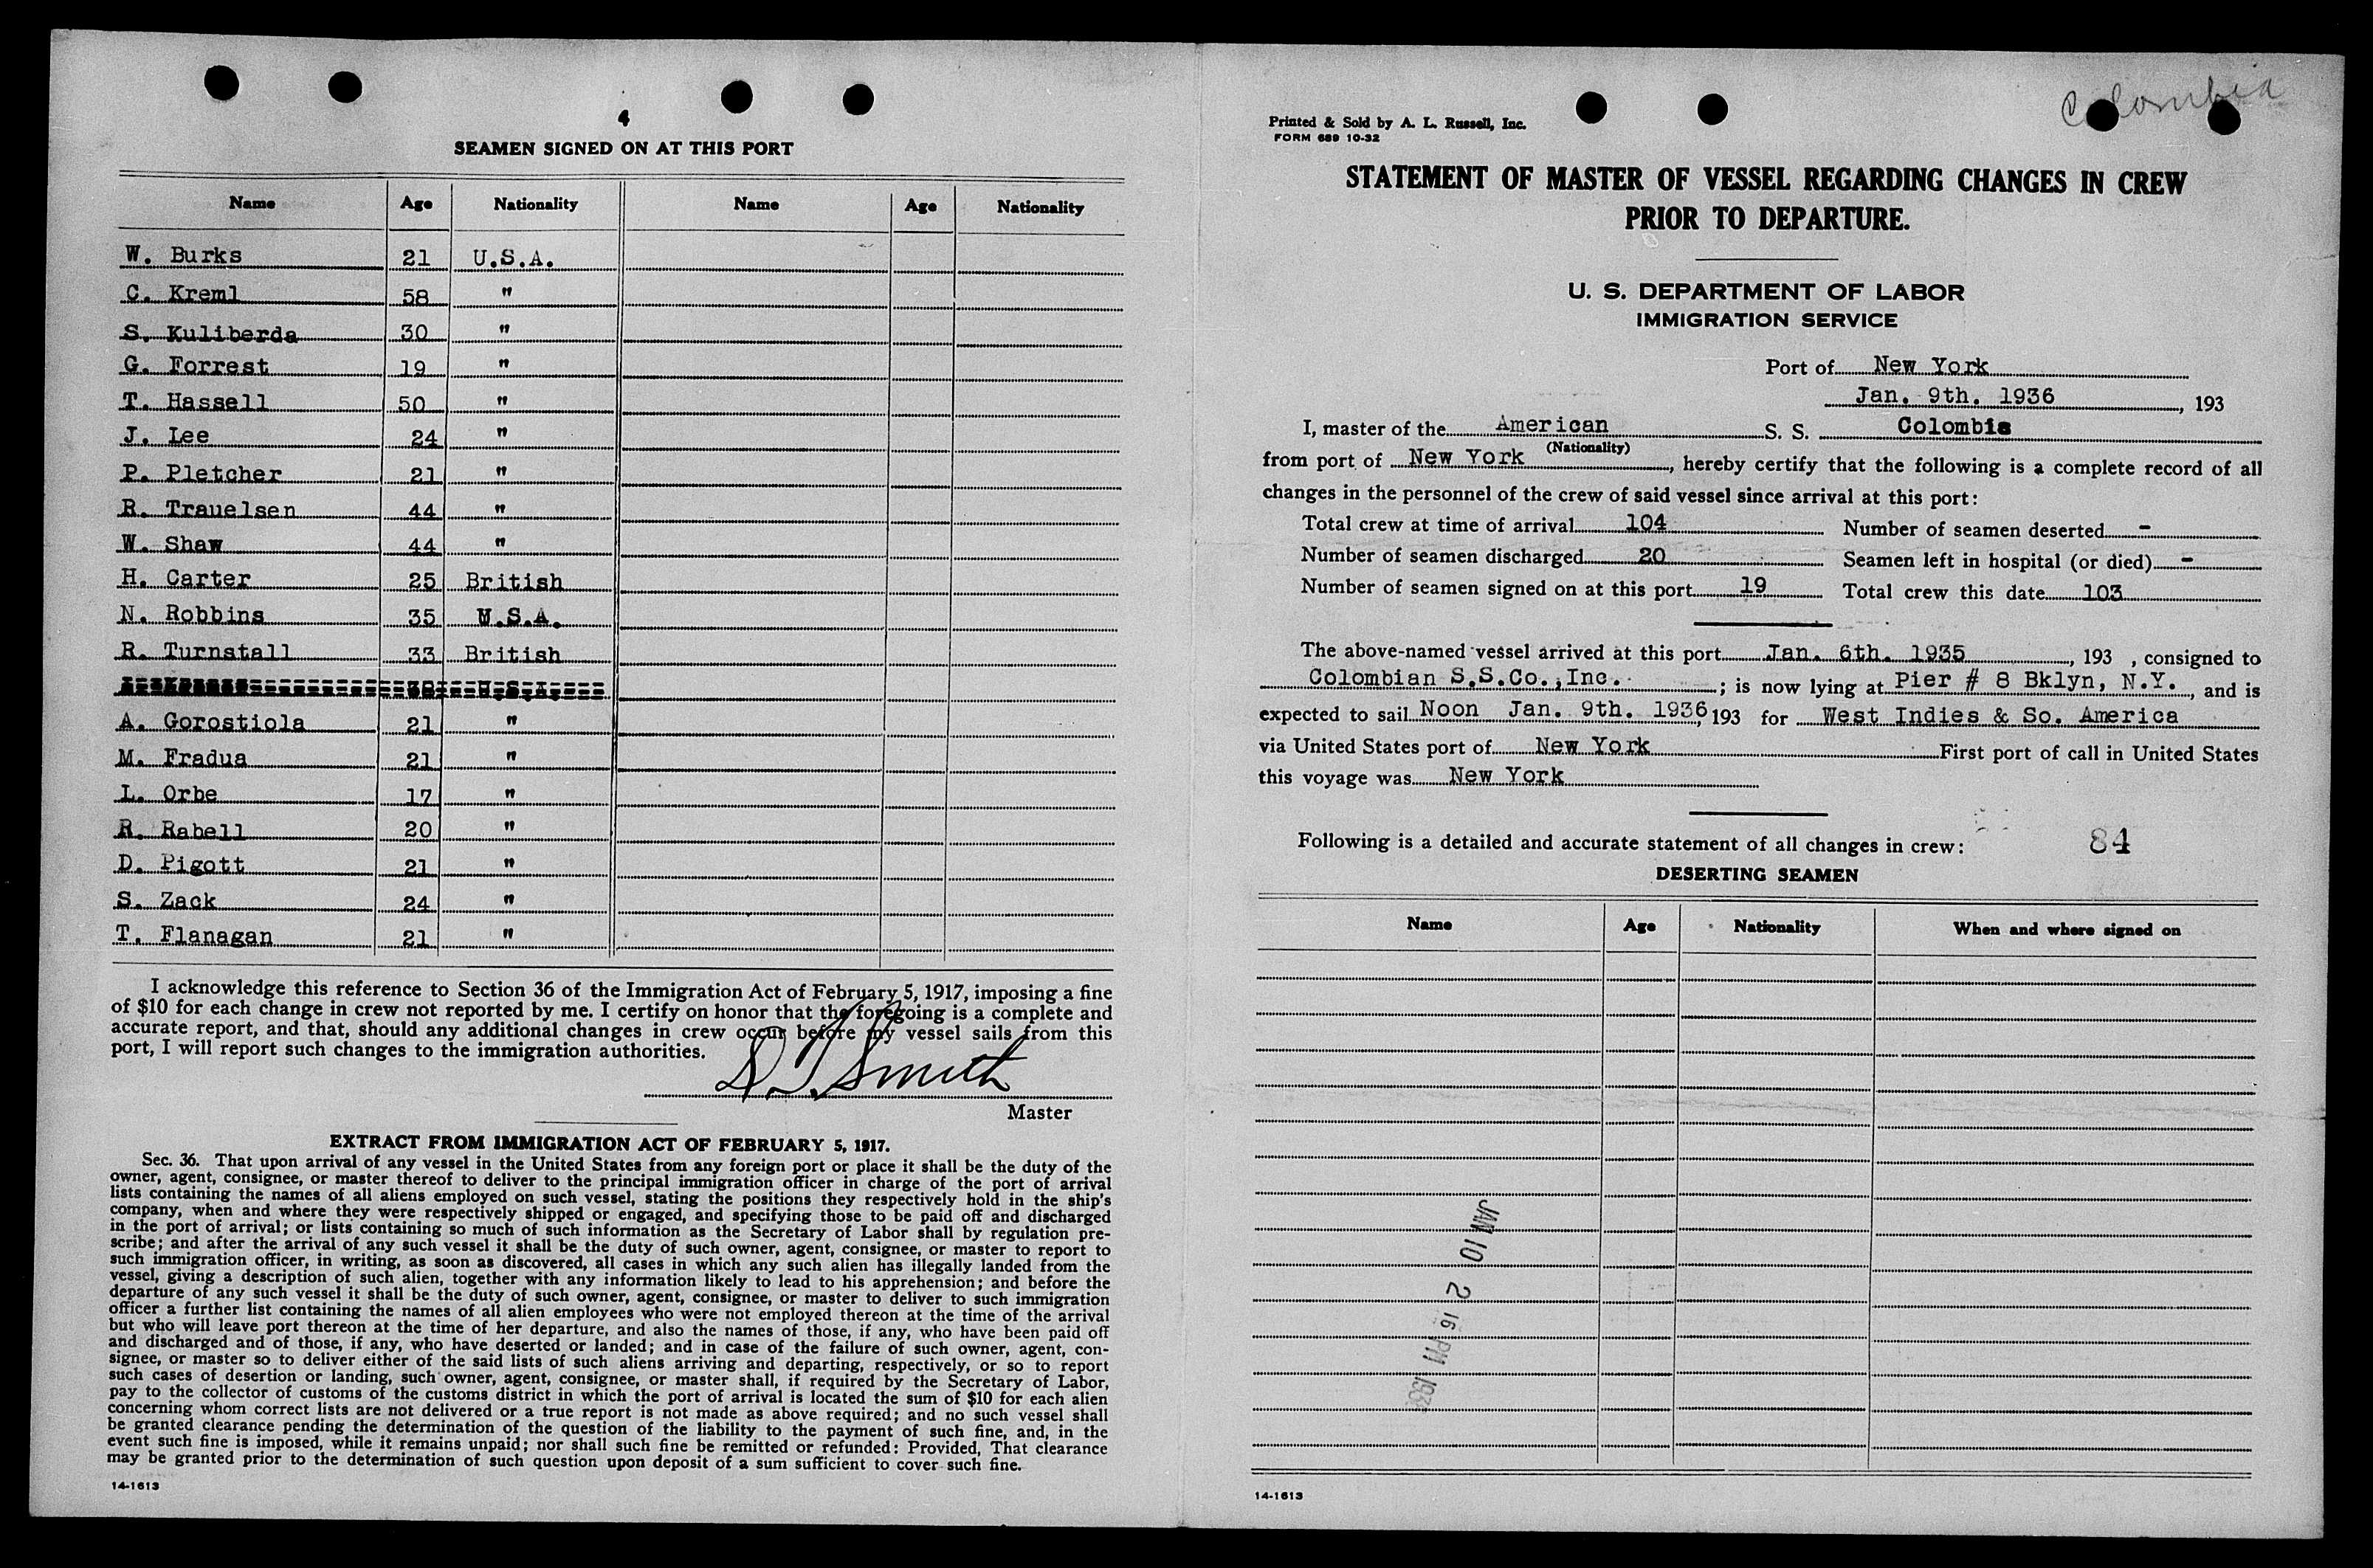 4
SEAMEN SIGNED ON AT THIS PORT
Name Age Nationality Name Age Nationality
W. Burks 21 U.S.A.
C. Kreml 58 "
S. Kuliberda 30 "
G. Forrest 19 "
T. Hassell 50 "
J. Lee 24 "
P. Pletcher 21 "
R. Trauelsen 44 "
W. Shaw 44 "
H. Carter 25 British
N. Robbins 35 U.S.A.
R. Turnstall 33 British
U.S.A.
A. Gorostiola 21 "
M. Fradua 21 "
L. Orbe 17 "
R. Rabell 20 "
D. Pigott 21 "
S. Zack 24 "
T. Flanagan 21 "
I acknowledge this reference to Section 36 of the Immigration Act of February 5, 1917, imposing a fine
of $10 for each change in crew not reported by me. I certify on honor that the foregoing is a complete and
accurate report, and that, should any additional changes in crew occur before my vessel sails from this
port, I will report such changes to the immigration authorities.
Smith
Master
EXTRACT FROM IMMIGRATION ACT OF FEBRUARY 5, 1917.
Sec. 36. That upon arrival of any vessel in the United States from any foreign port or place it shall be the duty of the
owner, agent, consignee, or master thereof to deliver to the principal immigration officer in charge of the port of arrival
lists containing the names of all aliens employed on such vessel, stating the positions they respectively hold in the ship's
company, when and where they were respectively shipped or engaged, and specifying those to be paid off and discharged
in the port of arrival; or lists containing so much of such information as the Secretary of Labor shall by regulation pre-
scribe; and after the arrival of any such vessel it shall be the duty of such owner, agent, consignee, or master to report to
such immigration officer, in writing, as soon as discovered, all cases in which any such alien has illegally landed from the
vessel, giving a description of such alien, together with any information likely to lead to his apprehension; and before the
departure of any such vessel it shall be the duty of such owner, agent, consignee, or master to deliver to such immigration
officer a further list containing the names of all alien employees who were not employed thereon at the time of the arrival
but who will leave port thereon at the time of her departure, and also the names of those, if any, who have been paid off
and discharged and of those, if any, who have deserted or landed; and in case of the failure of such owner, agent, con-
signee, or master so to deliver either of the said lists of such aliens arriving and departing, respectively, or so to report
such cases of desertion or landing, such owner, agent, consignee, or master shall, if required by the Secretary of Labor,
pay to the collector of customs of the customs district in which the port of arrival is located the sum of $10 for each alien
concerning whom correct lists are not delivered or a true report is not made as above required; and no such vessel shall
be granted clearance pending the determination of the question of the liability to the payment of such fine, and, in the
event such fine is imposed, while it remains unpaid; nor shall such fine be remitted or refunded: Provided, That clearance
may be granted prior to the determination of such question upon deposit of a sum sufficient to cover such fine.
14-1613
Colombia
Printed & Sold by A. L. Russell, Inc.
FORM 689 10-32
STATEMENT OF MASTER OF VESSEL REGARDING CHANGES IN CREW
PRIOR TO DEPARTURE.
U. S. DEPARTMENT OF LABOR
IMMIGRATION SERVICE
Port of New York
Jan. 9th. 1936, 193
I, master of the American S. S. Colombia
(Nationality)
from port of New York, hereby certify that the following is a complete record of all
changes in the personnel of the crew of said vessel since arrival at this port:
Total crew at time of arrival 104 Number of seamen deserted -
Number of seamen discharged 20 Seamen left in hospital (or died) -
Number of seamen signed on at this port 19 Total crew this date 103
The above-named vessel arrived at this port Jan. 6th. 1935, 193 , consigned to
Colombian S.S.Co.,Inc. ; is now lying at Pier # 8 Bklyn, N.Y., and is
expected to sail Noon Jan. 9th. 1936, 193 for West Indies & So. America
via United States port of New York First port of call in United States
this voyage was New York
Following is a detailed and accurate statement of all changes in crew: 84
DESERTING SEAMEN
Name Age Nationality When and where signed on
JAN 10 2 16 PM
14-1613